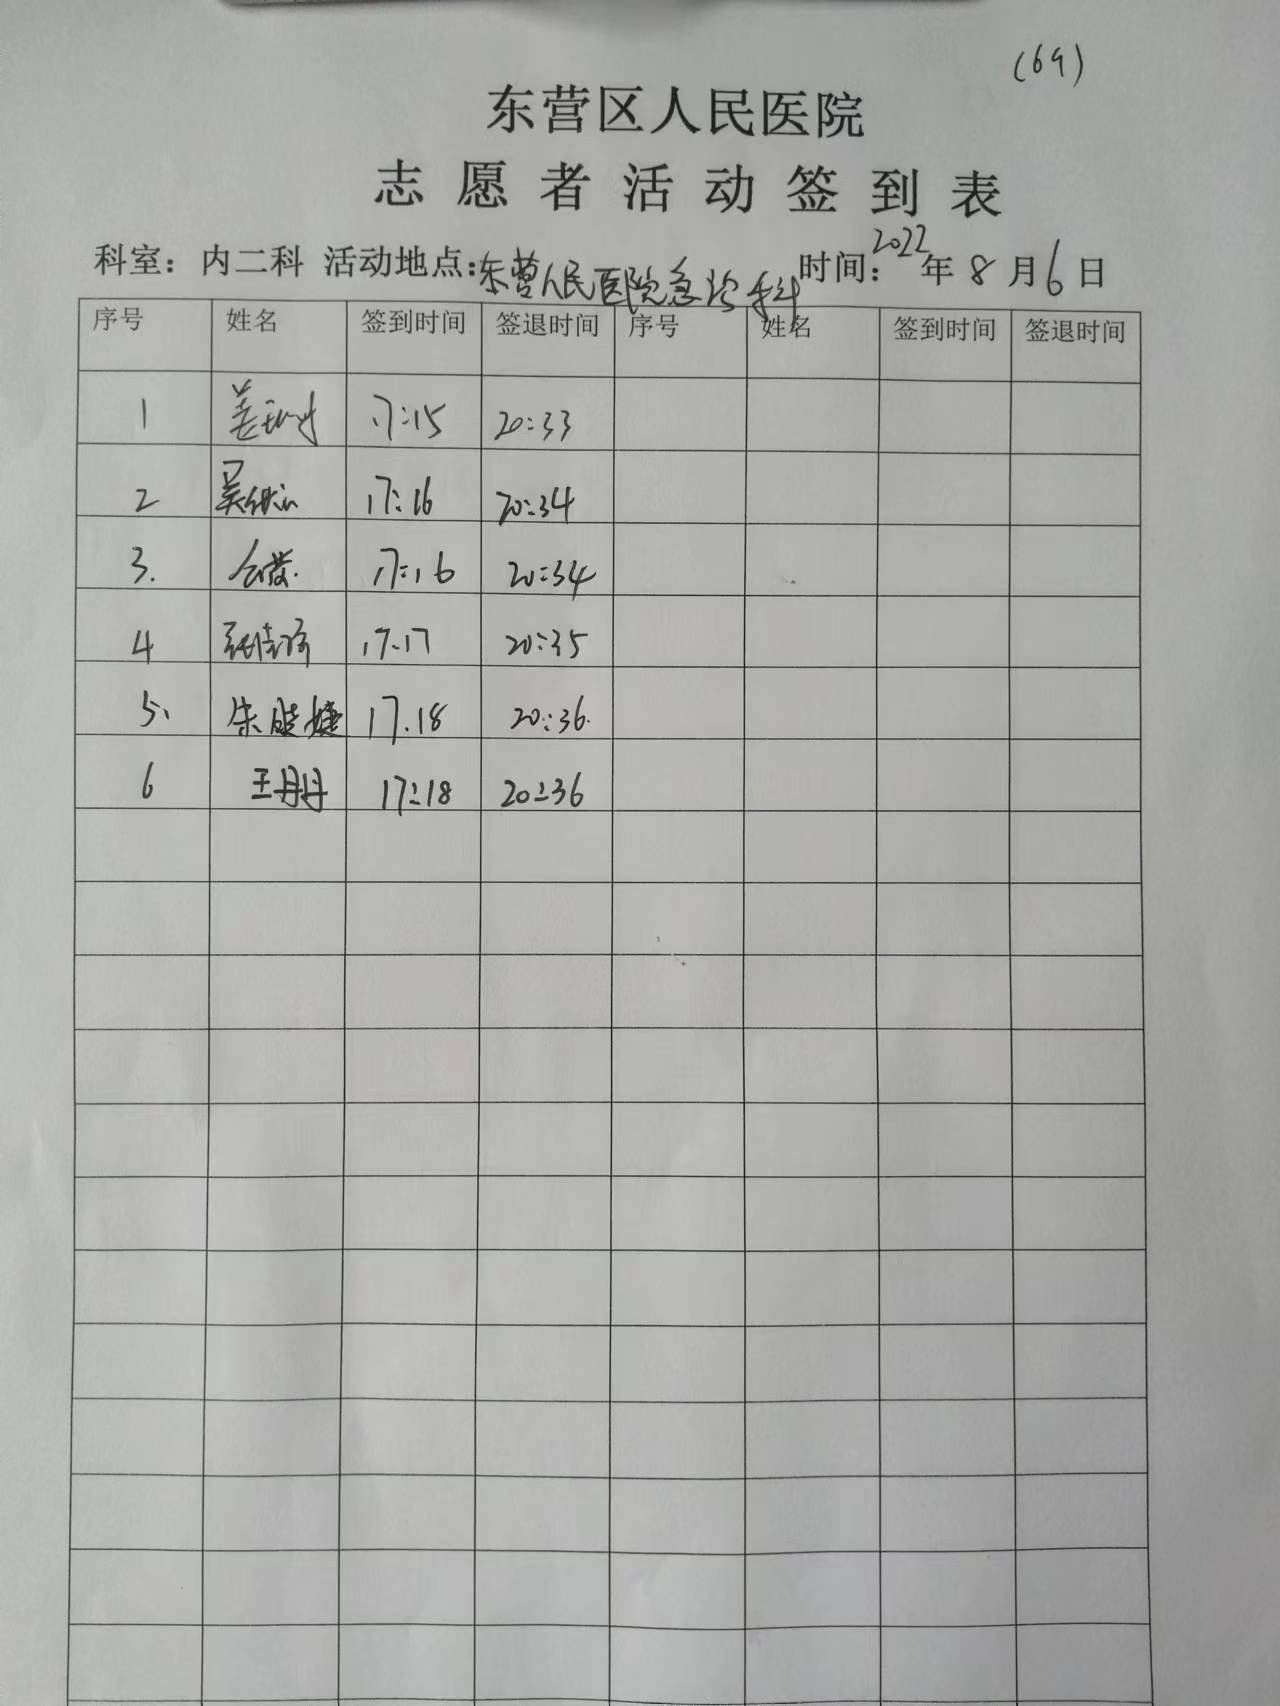 (69)
东营区人民医院
志愿者活动签到表
科室：内二科 活动地点：东营人民医院急诊科 时间：2022年8月6日
序号 姓名 签到时间 签退时间 序号 姓名 签到时间 签退时间
1 17:15 20:33
2 17:16 20:34
3. 17:16 20:34
4 17:17 20:35
5、 朱晓婕 17.18 20:36.
6 王丹丹 17:18 20:36